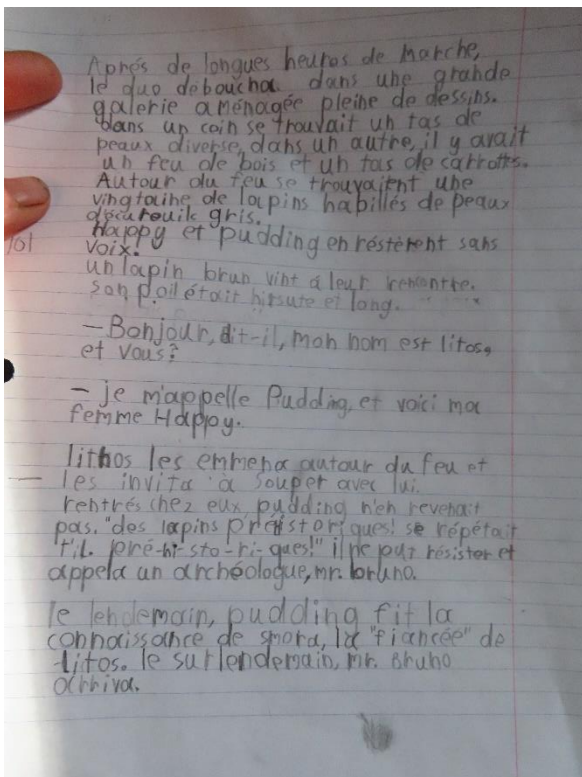 Aprés de longues heures de marche,
le duo deboucha dans une grande
galerie aménagée pleine de dessins.
dans un coin se trouvait un tas de
peaux diverse, dans un autre, il y avait
un feu de bois et un tas de carrottes.
Autour du feu se trouvaient une
vingtaine de lapins habillés de peaux
d'écureuils gris.
Happy et pudding en réstèrent sans
voix.
un lapin brun vint á leur rencontre.
son poil était hirsute et long.
— Bonjour, dit-il, mon nom est litos,
et vous?
— je m'appelle Pudding, et voici ma
femme Happy.
lithos les emmena autour du feu et
les invita à souper avec lui.
rentrés chez eux, pudding n'en revenait
pas. "des lapins préistoriques! se répétait
t'il. pré-hi-sto-ri-ques!" il ne put résister et
appela un archéologue, mr. bruno.
le lendemain, pudding fit la
connaissance de smora, la "fiancée" de
litos. le surlendemain, mr. Bruno
arriva.